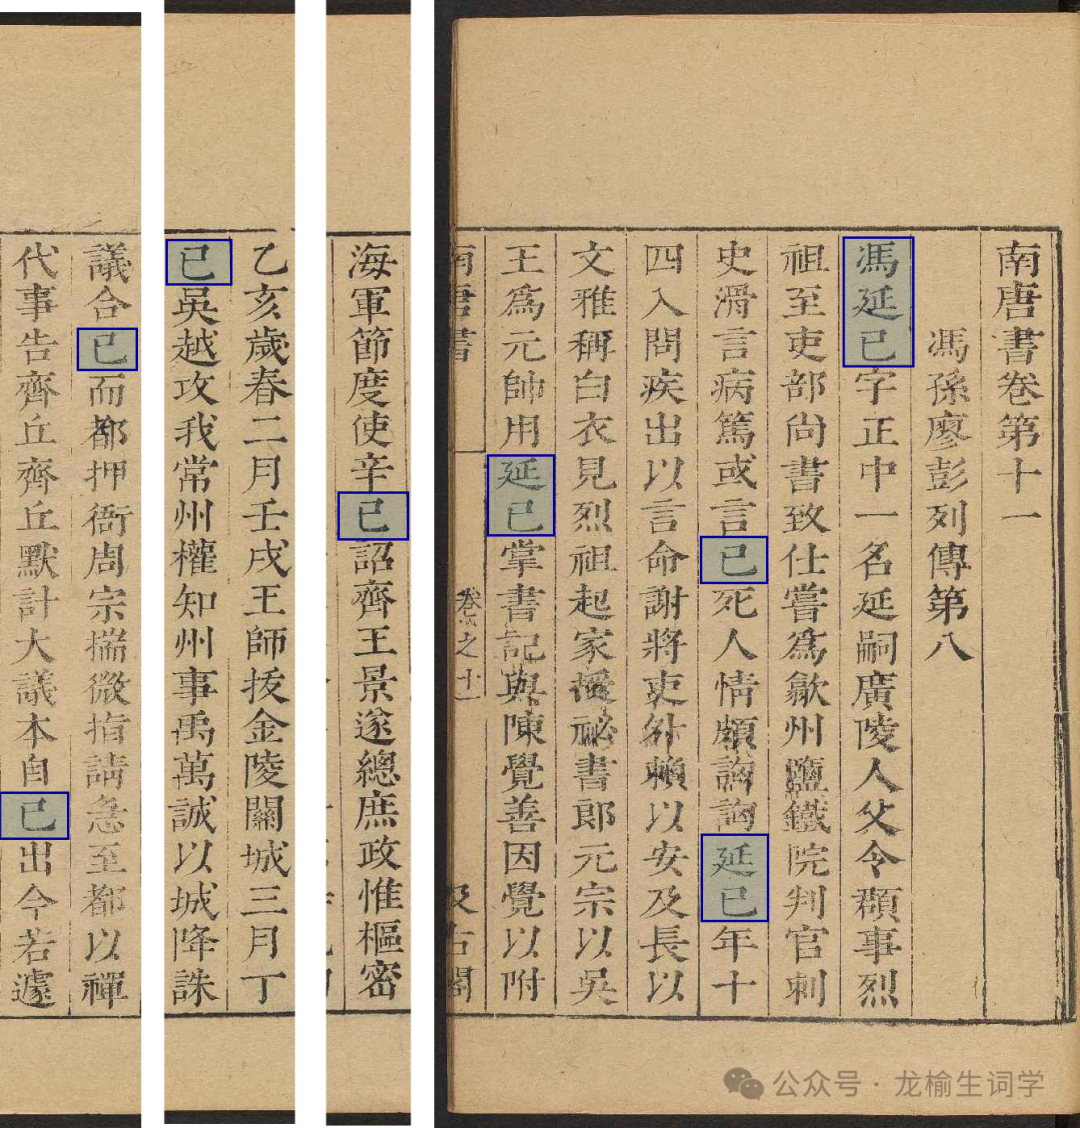 南唐書卷第十一
馮孫廖彭列傳第八
馮延已字正中一名延嗣廣陵人父令頵事烈
祖至吏部尚書致仕嘗爲歙州鹽鐵院判官刺
史滑言病篤或言已死人情頗訩訩延已年十
四入問疾出以言命謝將吏外賴以安及長以
文雅稱白衣見烈祖起家授祕書郎元宗以吳
王爲元帥用延已掌書記與陳覺善因覺以附
南唐書
海軍節度使辛已詔齊王景遂總庶政惟樞密
乙亥歲春二月壬戌王師拔金陵關城三月丁
已吳越攻我常州權知州事禹萬誠以城降誅
議合已而都押衙周宗揣微指請急至都以禪
代事告齊丘齊丘默計大議本自已出今若遽
公众号·龙榆生词学